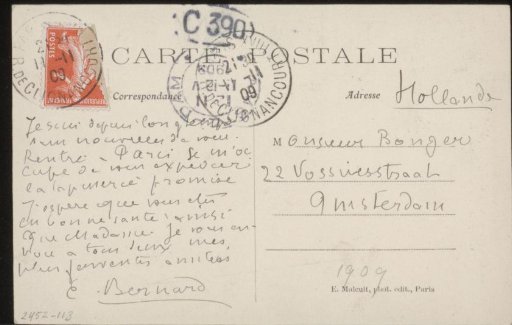 C 390
CARTE POSTALE
Correspondance
Adresse
Hollande
Je suis depuis longtemps
sans nouvelles de vous.
Rentré à Paris je m'oc
cupe de vous expédier
la promise
J'espère que vous êtes
en bonne santé ainsi
que Madame. Je vous en-
voie à tous deux mes
plus ferventes amitiés
E. Bernard
Monsieur Bonger
22 Vossiusstraat
Amsterdam
1909
E. Malcuit, phot. édit., Paris
2452-113